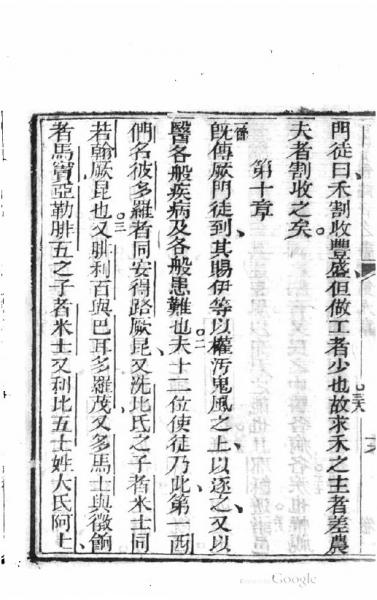 門徒曰禾割收豐盛但做工者少也三八故求禾之主者差農
夫者割收之矣
第十章
一節旣傳厥門徒到其賜伊等以權汚鬼風之上以逐之又以
醫各般疾病及各般患難也二夫十二位使徒乃此第一西
們名彼多羅者同安得路厥昆又洗比氏之子者米士同
若翰厥昆也三又腓利百與巴耳多羅茂又多馬士與微
者馬寶亞勒腓五之子者米士又利比五士姓大氏阿上
Google